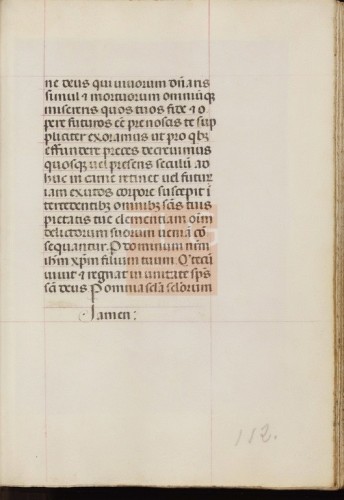 ne deus qui viuorum dñaris
simul ⁊ mortuorum omniūq̃
misereris quos tuos fide ⁊ o
pere futuros eē prenoscis te sup
pliciter exoramus ut pro qbꝫ
effundere preces decreuimus
quosqꝫ uel presens seculū ad
huc in carne retinet uel futur
iam exutos corpore suscepit ī
tercedentibꝫ omnibꝫ sc̄is tuis
pietatis tue clementiam oīm
delictorum suorum ueniā cō
sequantur. P dominum nr̄m
ihm xp̄m filium tuum. Q' tecū
viuit ⁊ regnat in unitate sp̄s
sc̄i deus P omnia sc̄la sc̄lorum
amen:
112.